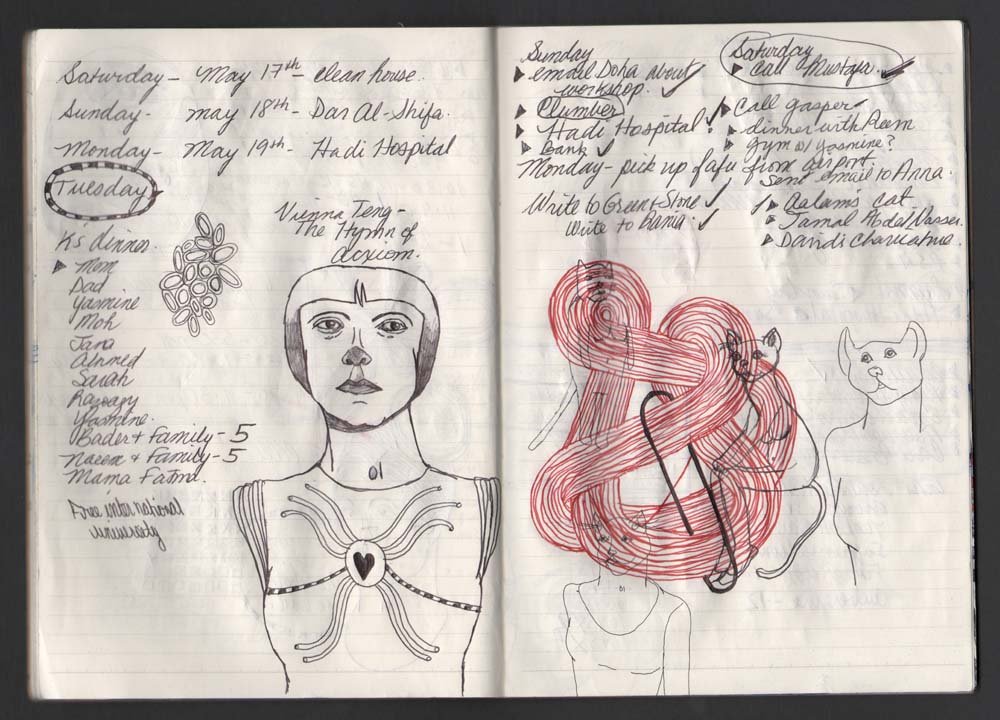 Saturday - May 17th - clean house.
Sunday - may 18th - Dar Al-Shifa.
Monday - May 19th - Hadi Hospital
Tuesday
K's dinner.
Mom
Dad
Yasmine
Moh
Jana
Ahmed
Sarah
Yasmine.
Bader + Family - 5
+ Family - 5
Mama Fatma.
Free international
university
Vienna Teng -
The Hymn of
Acxiom.
Sunday
email Doha about
workshop.
Plumber
Hadi Hospital
Bank
Monday - pick up from airport
Write to Green + Stone
Write to Rania
Saturday
Call Mustafa.
Call gasper
dinner with Reem
gym w/ yasmine?
Send email to Anna.
Aalam's cat
Jamal Abdel Nasser.